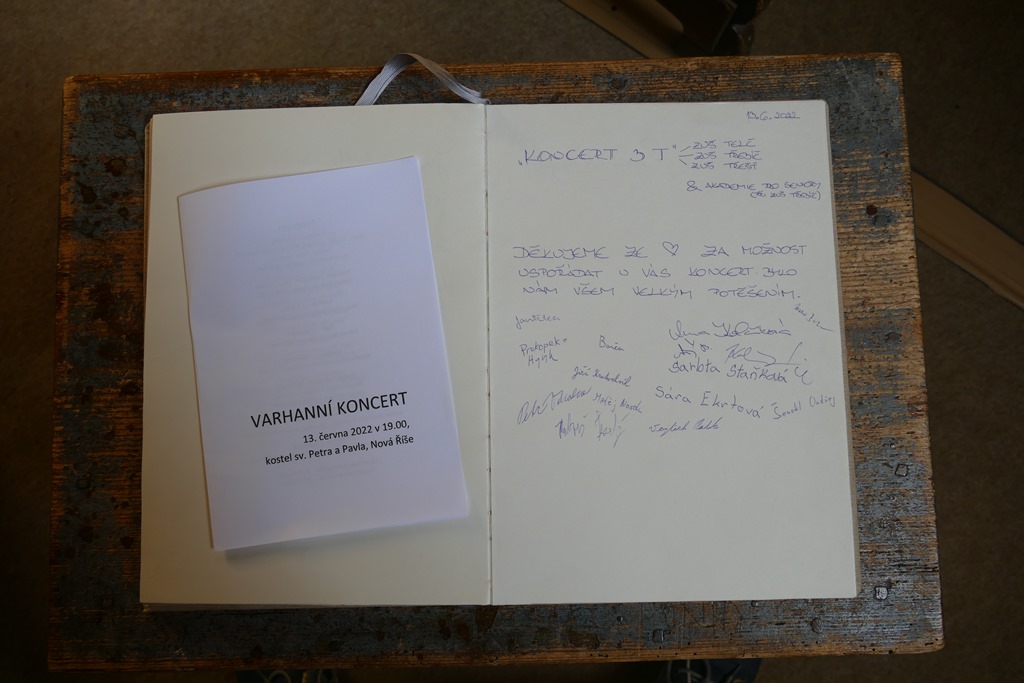 VARHANNÍ KONCERT
13. června 2022 v 19.00,
kostel sv. Petra a Pavla, Nová Říše
13.6.2022
„KONCERT 3 T"
ZUŠ TELČ
ZUŠ TŘEBÍČ
ZUŠ TŘEŠŤ
& AKADEMIE PRO SENIORY
(PŘI ZUŠ TŘEBÍČ)
DĚKUJEME ZE ♡ ZA MOŽNOST
USPOŘÁDAT U VÁS KONCERT. BYLO
NÁM VŠEM VELKÝM POTĚŠENÍM.
Prokopek
Hynek
Barbora Staňková
Sára Ekrtová